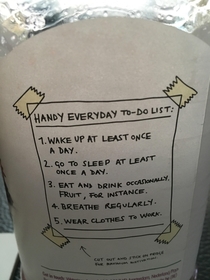 HANDY EVERYDAY TO-DO LIST:
1. WAKE UP AT LEAST ONCE
A DAY.
2. GO TO SLEEP AT LEAST
ONCE A DAY.
3. EAT AND DRINK OCCASIONALLY.
FRUIT, FOR INSTANCE.
4. BREATHE REGULARLY.
5. WEAR CLOTHES TO WORK.
CUT OUT AND STICK ON FRIDGE
FOR MAXIMUM MOTIVATION.